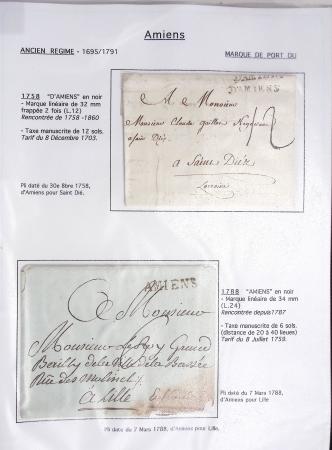 Amiens
ANCIEN REGIME - 1695/1791
MARQUE DE PORT DU
1758 "D'AMIENS" en noir
- Marque linéaire de 32 mm
frappée 2 fois (L.12)
Rencontrée de 1758 -1860
- Taxe manuscrite de 12 sols.
Tarif du 8 Décembre 1703.
Pli daté du 30e 8bre 1758,
d'Amiens pour Saint Dié.
D'AMIENS
A Monsieur
Monsieur Claude
12
a Saint Diéz
Lorraine
AMIENS
A Monsieur
Monsieur
à Lille
1788 "AMIENS" en noir
- Marque linéaire de 34 mm
(L.24)
Rencontrée depuis1787
- Taxe manuscrite de 6 sols.
(distance de 20 à 40 lieues)
Tarif du 8 Juillet 1759.
Pli daté du 7 Mars 1788,
d'Amiens pour Lille
Pli date du 7 Mars 1788, d'Amiens pour Lille.